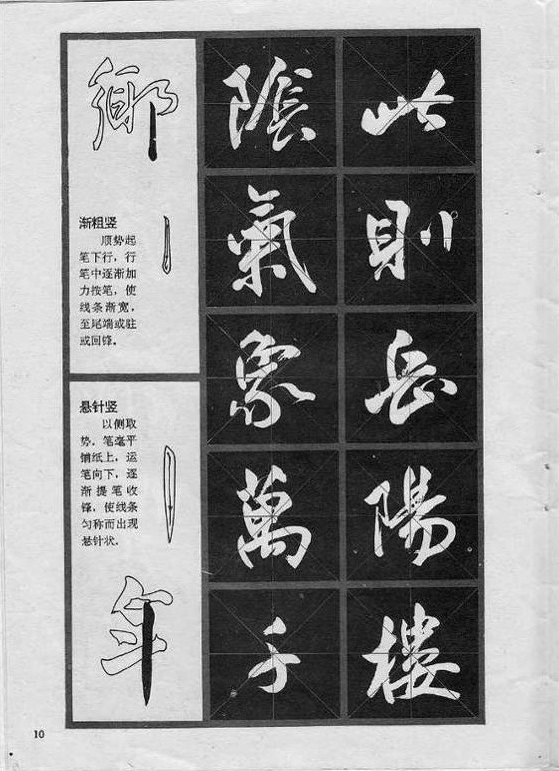 此則岳陽樓
陰氣象萬千
鄉
渐粗竖
顺势起
笔下行，行
笔中逐渐加
力按笔，使
线条渐宽，
至尾端或驻
或回锋。
悬针竖
以侧取
势，笔毫平
铺纸上，运
笔向下，逐
渐提笔收
锋，使线条
匀称而出现
悬针状。
年
10